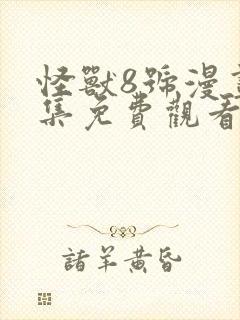 怪獸8號漫
集免費觀看
諸羊黃昏